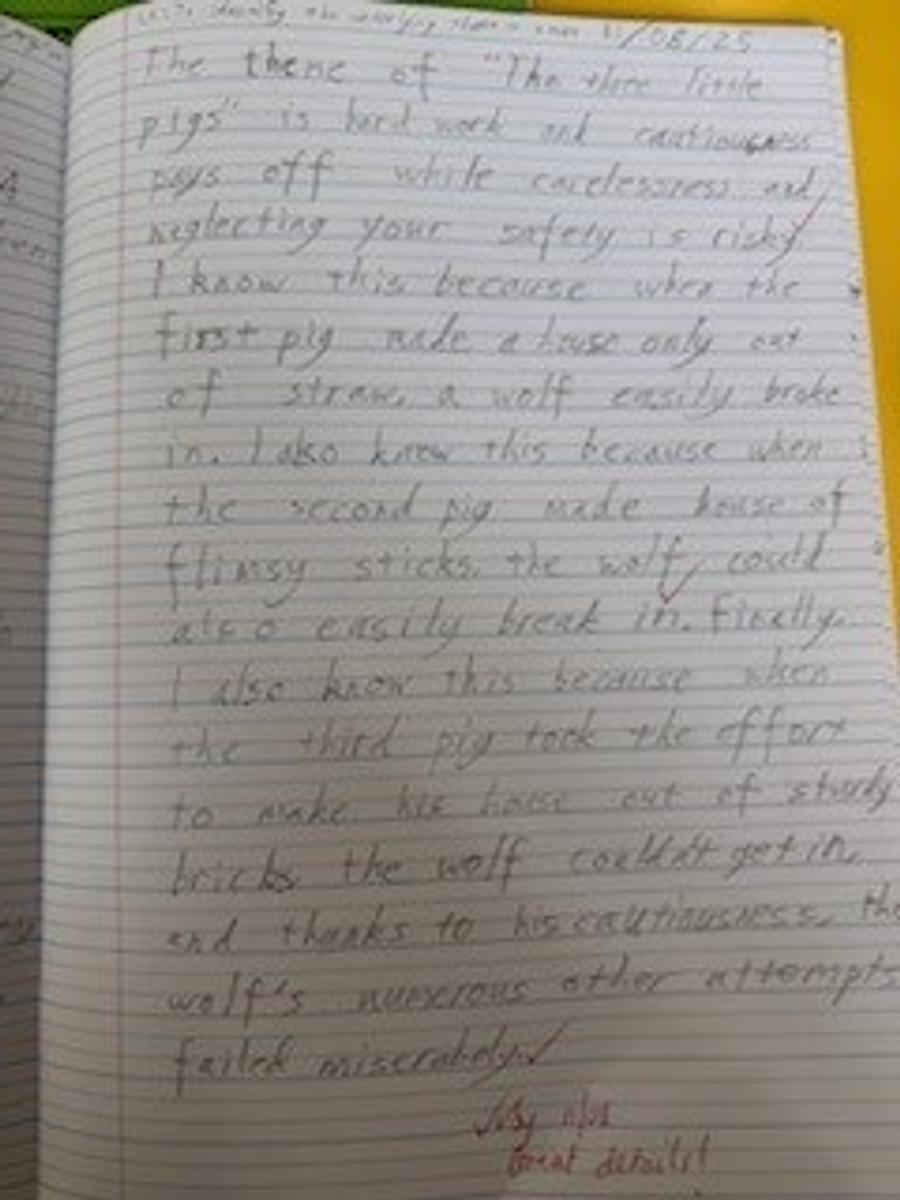 identify the underlying 11/08/25
The theme of "The three little
pigs" is hard work and cautiousness
pays off while carelessness and
neglecting your safety is risky.
I know this because when the
first pig made a house only out
of straw, a wolf easily broke
in. I also know this because when
the second pig made house of
flimsy sticks, the wolf could
also easily break in. Finally,
I also know this because when
the third pig took the effort
to make his house out of sturdy
bricks the wolf couldn't get in,
and thanks to his cautiousness, the
wolf's numerous other attempts
failed miserably.
Great details!